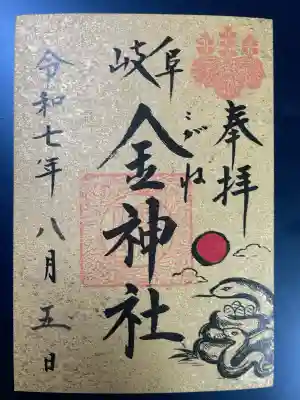 奉拝
岐阜
こがね
金神社
令和七年八月五日